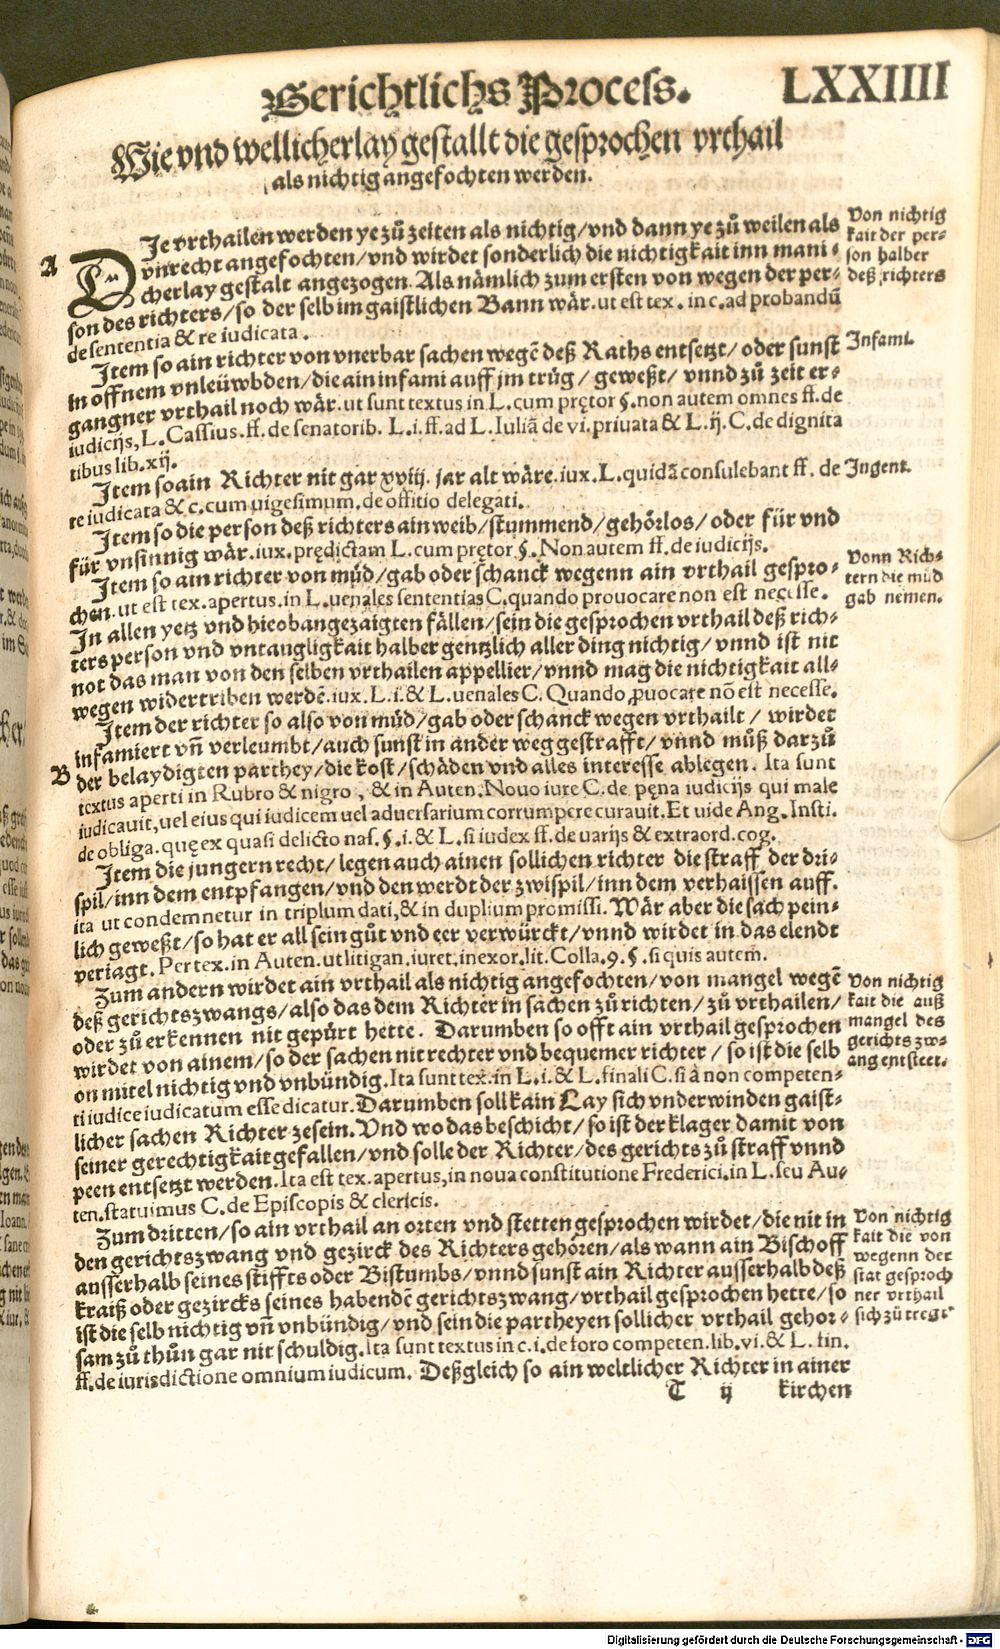 Gerichtlichs Process. LXXIIII
Wie vnd wellicherlay gestallt die gesprochen vrthail
als nichtig angefochten werden.
A
DJe vrthailen werden ye zů zeiten als nichtig/vnd dann ye zů weilen als
vnrecht angefochten/vnd wirdet sonderlich die nichtigkait inn mani⸗
cherlay gestalt angezogen. Als nämlich zum ersten von wegen der per⸗
son des richters/so der selb im gaistlichen Bann wär. ut est tex. in c. ad probandū
de sententia & re iudicata.
Von nichtig
kait der per⸗
son halber
deß richters
Jtem so ain richter von vnerbar sachen wegē deß Raths entsetzt/oder sunst
in offnem vnleüwbden/die ain infami auff jm trüg/geweßt/vnnd zů zeit er⸗
gangner vrthail noch wär. ut sunt textus in L. cum prętor §. non autem omnes ff. de
iudicijs, L. Cassius. ff. de senatorib. L. i. ff. ad L. Iuliā de vi. priuata & L. ij. C. de dignita
tibus lib. xij.
Infami.
Jtem so ain Richter nit gar xviij. jar alt wäre. iux. L. quidā consulebant ff. de
re iudicata & c. cum uigesimum. de offitio delegati.
Ingent.
Jtem so die person deß richters ain weib/stummend/gehörlos/oder für vnd
für vnsinnig wär. iux. prędictam L. cum prętor §. Non autem ff. de iudicijs.
Jtem so ain richter von müd/gab oder schanck wegenn ain vrthail gespro⸗
chen. ut est tex. apertus. in L. uenales sententias C. quando prouocare non est necesse.
Vonn Rich⸗
tern die müd
gab nemen.
In allen yetz vnd hieobangezaigten fällen/sein die gesprochen vrthail deß rich⸗
ters person vnd vntaugligkait halber gentzlich aller ding nichtig/vnnd ist nit
not das man von den selben vrthailen appellier/vnnd mag die nichtigkait all⸗
wegen widertriben werdē. iux. L. i. & L. uenales C. Quando ꝓuocare nō est necesse.
Jtem der richter so also von müd/gab oder schanck wegen vrthailt/wirdet
infamiert vñ verleumbt/auch sunst in ander weg gestrafft/vnnd můß darzů
B
der belaydigten parthey/die kost/schäden vnd alles interesse ablegen. Ita sunt
textus aperti in Rubro & nigro, & in Auten. Nouo iure C. de pęna iudicijs qui male
iudicauit, uel eius qui iudicem uel aduersarium corrumpere curauit. Et uide Ang. Insti.
de obliga. quę ex quasi delicto nas. §. i. & L. si iudex ff. de uarijs & extraord. cog.
Jtem die jungern recht/legen auch ainen sollichen richter die straff der dri⸗
spil/inn dem entpfangen/vnd den werdt der zwispil/inn dem verhaissen auff.
ita ut condemnetur in triplum dati, & in duplium promissi. Wär aber die sach pein⸗
lich geweßt/so hat er all sein gůt vnd eer verwürckt/vnnd wirdet in das elendt
veriagt. Per tex. in Auten. ut litigan. iuret. in exor. lit. Colla. 9. §. si quis autem.
Zum andern wirdet ain vrthail als nichtig angefochten/von mangel wegē
deß gerichtszwangs/also das dem Richter in sachen zů richten/zů vrthailen/
oder zů erkennen nit gepürt hette. Darumben so offt ain vrthail gesprochen
wirdet von ainem/so der sachen nit rechter vnd bequemer richter/so ist die selb
on mitel nichtig vnd vnbündig. Ita sunt tex. in L. i. & L. finali C. si à non competen⸗
ti iudice iudicatum esse dicatur. Darumben soll kain Lay sich vnderwinden gaist⸗
licher sachen Richter ze sein. Vnd wo das beschicht/so ist der klager damit von
seiner gerechtigkait gefallen/vnd solle der Richter/des gerichts zů straff vnnd
peen entsetzt werden. Ita est tex. apertus, in noua constitutione Frederici. in L. seu Au⸗
ten. statuimus C. de Episcopis & clericis.
Von nichtig
kait die auß
mangel des
gerichts zw⸗
ang entsteet.
Zum dritten/so ain vrthail an orten vnd stetten gesprochen wirdet/die nit in
den gerichtszwang vnd gezirck des Richters gehören/als wann ain Bischoff
ausserhalb seines stiffts oder Bistumbs/vnnd sunst ain Richter ausserhalb deß
kraiß oder gezircks seines habendē gerichtszwang/vrthail gesprochen hette/so
ist die selb nichtig vñ vnbündig/vnd sein die partheyen sollicher vrthail gehor⸗
sam zů thůn gar nit schuldig. Ita sunt textus in c. i. de foro competen. lib. vi. & L. fin.
ff. de iurisdictione omnium iudicum. Deßgleich so ain weltlicher Richter in ainer
Von nichtig
kait die von
wegenn der
stat gesproch
ner vrthail
sich zů tregt
T ij kirchen
Digitalisierung gefördert durch die Deutsche Forschungsgemeinschaft - DFG